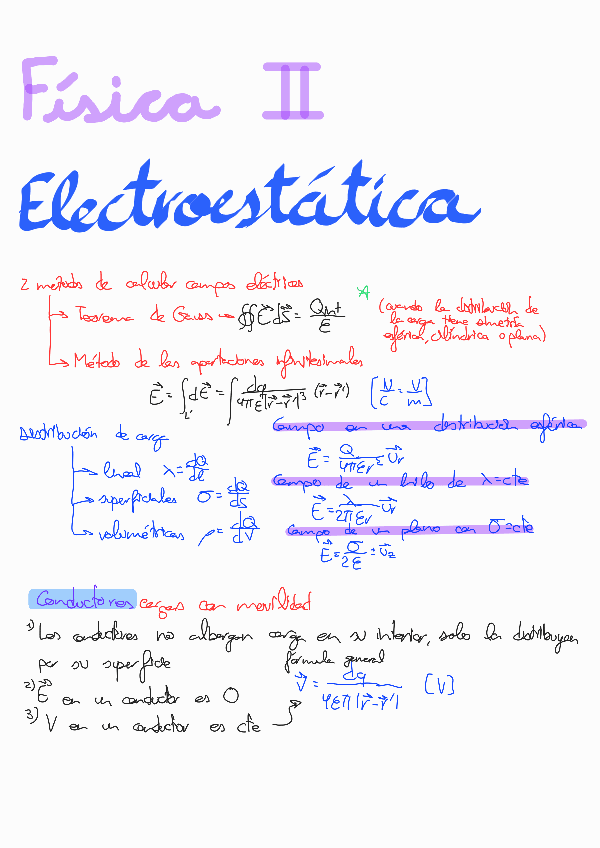 Física II
Electroestática
2 metodos de calcular campos eléctricos
→ Teorema de Gauss → ∯ E⃗ dS⃗ = Qint/ε
(cuando la distribución de
la carga tiene simetría
esférica, cilíndrica o plana)
→ Método de las aportaciones infinitesimales
E⃗ = ∫L' dE⃗ = ∫ dq/(4πε|r⃗-r⃗'|³) (r⃗-r⃗') [N/C = V/m]
Distribución de carga
→ lineal λ = dQ/dl
→ superficiales σ = dQ/dS
→ volumétricas ρ = dQ/dV
Campo en una distribución esférica
E⃗ = Q/(4πεr²) u⃗r
Campo de un hilo de λ=cte
E⃗ = λ/(2πεr) u⃗r
Campo de un plano con σ=cte
E⃗ = σ/2ε ± u⃗z
Conductores cargas con movilidad
1) Los conductores no albergan carga en su interior, solo la distribuyen
por su superficie
2) E⃗ en un conductor es 0
3) V en un conductor es cte
fórmula general
V⃗ = dq/(4επ|r⃗-r⃗'|) [V]